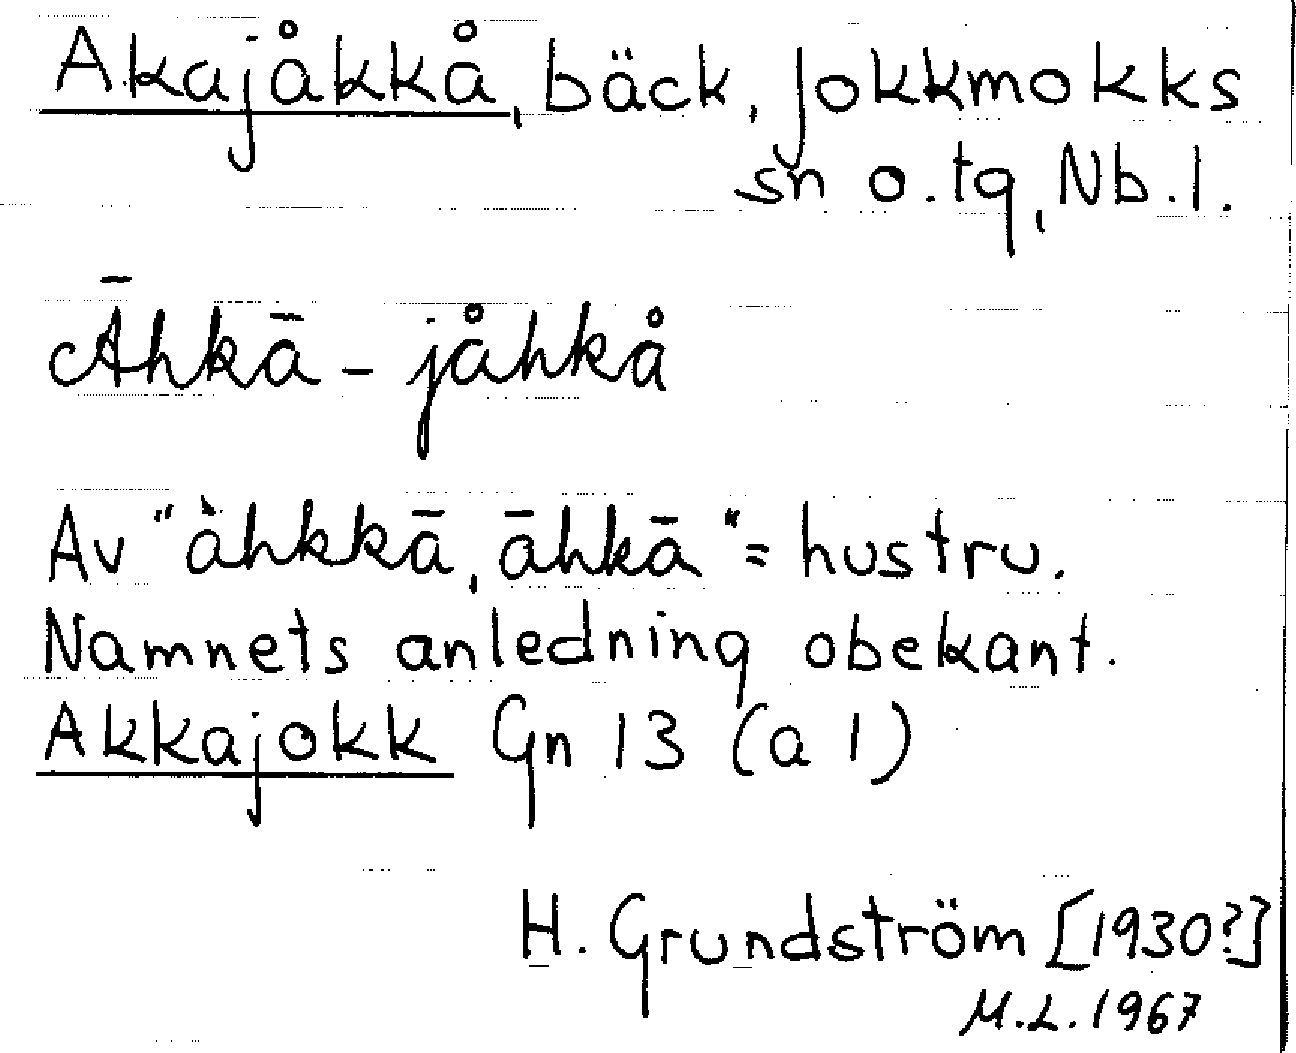 Akajåkkå, bäck, Jokkmokks
sn o. tg, Nb. l.
Āhkā - jåhkå
Av "àhkkā, āhkā" = hustru.
Namnets anledning obekant.
Akkajokk Gn 13 (a 1)
H. Grundström [1930?]
M.L. 1967